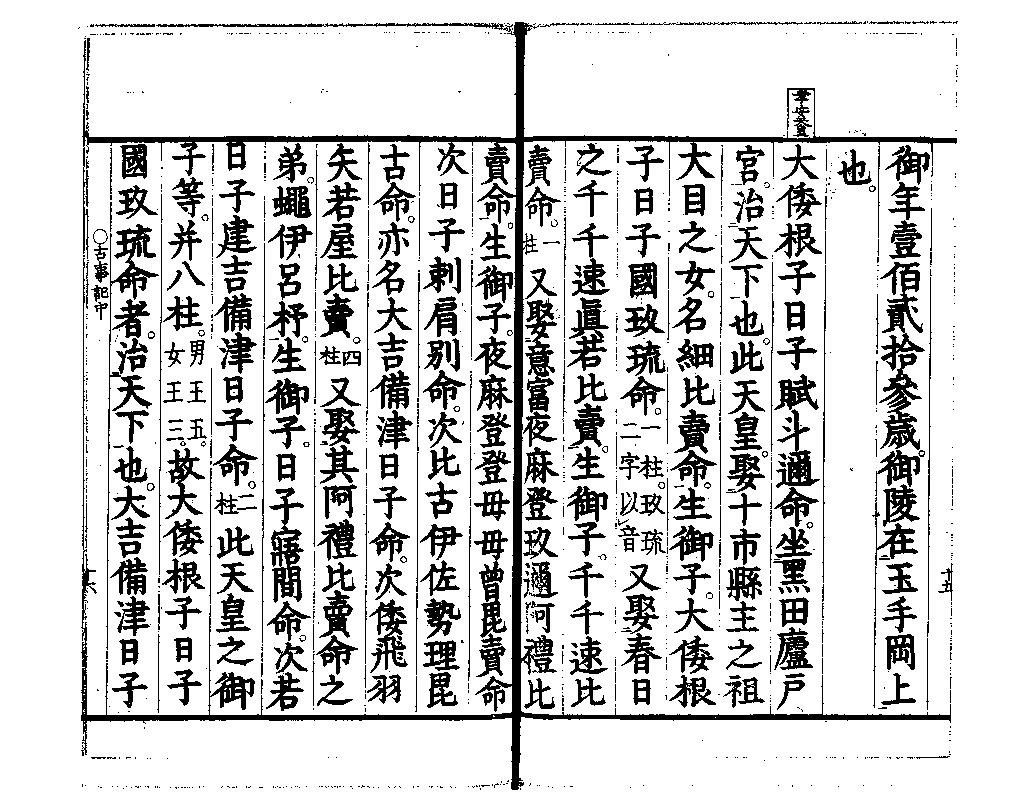 御年壹佰貳拾參歳。御陵在玉手岡上
也。
孝安孝霊
大倭根子日子賦斗邇命。坐黑田廬戸
宮。治天下也。此天皇。娶十市縣主之祖
大目之女。名細比賣命。生御子。大倭根
子日子國玖琉命。一柱。玖琉二字以音 又娶春日
之千千速眞若比賣。生御子。千千速比
賣命。一柱 又娶意富夜麻登玖邇阿禮比
賣命。生御子。夜麻登登母母曾毘賣命
次日子刺肩別命。次比古伊佐勢理毘
古命。亦名大吉備津日子命。次倭飛羽
矢若屋比賣。四柱 又娶其阿禮比賣命之
弟。蠅伊呂杼。生御子。日子寤間命。次若
日子建吉備津日子命。二柱 此天皇之御
子等。并八柱。男王五。女王三。故大倭根子日子
國玖琉命者。治天下也。大吉備津日子
○古事記中